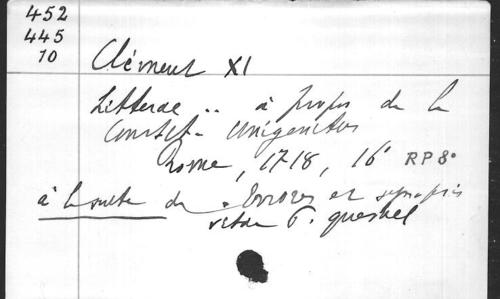 452
445
10
Clément XI
Litterae .. à propos de la
Constit. Unigenitus
Rome, 1718, 16° RP 8°
à la suite de. Errores et synopsis
vitae P. Quesnel